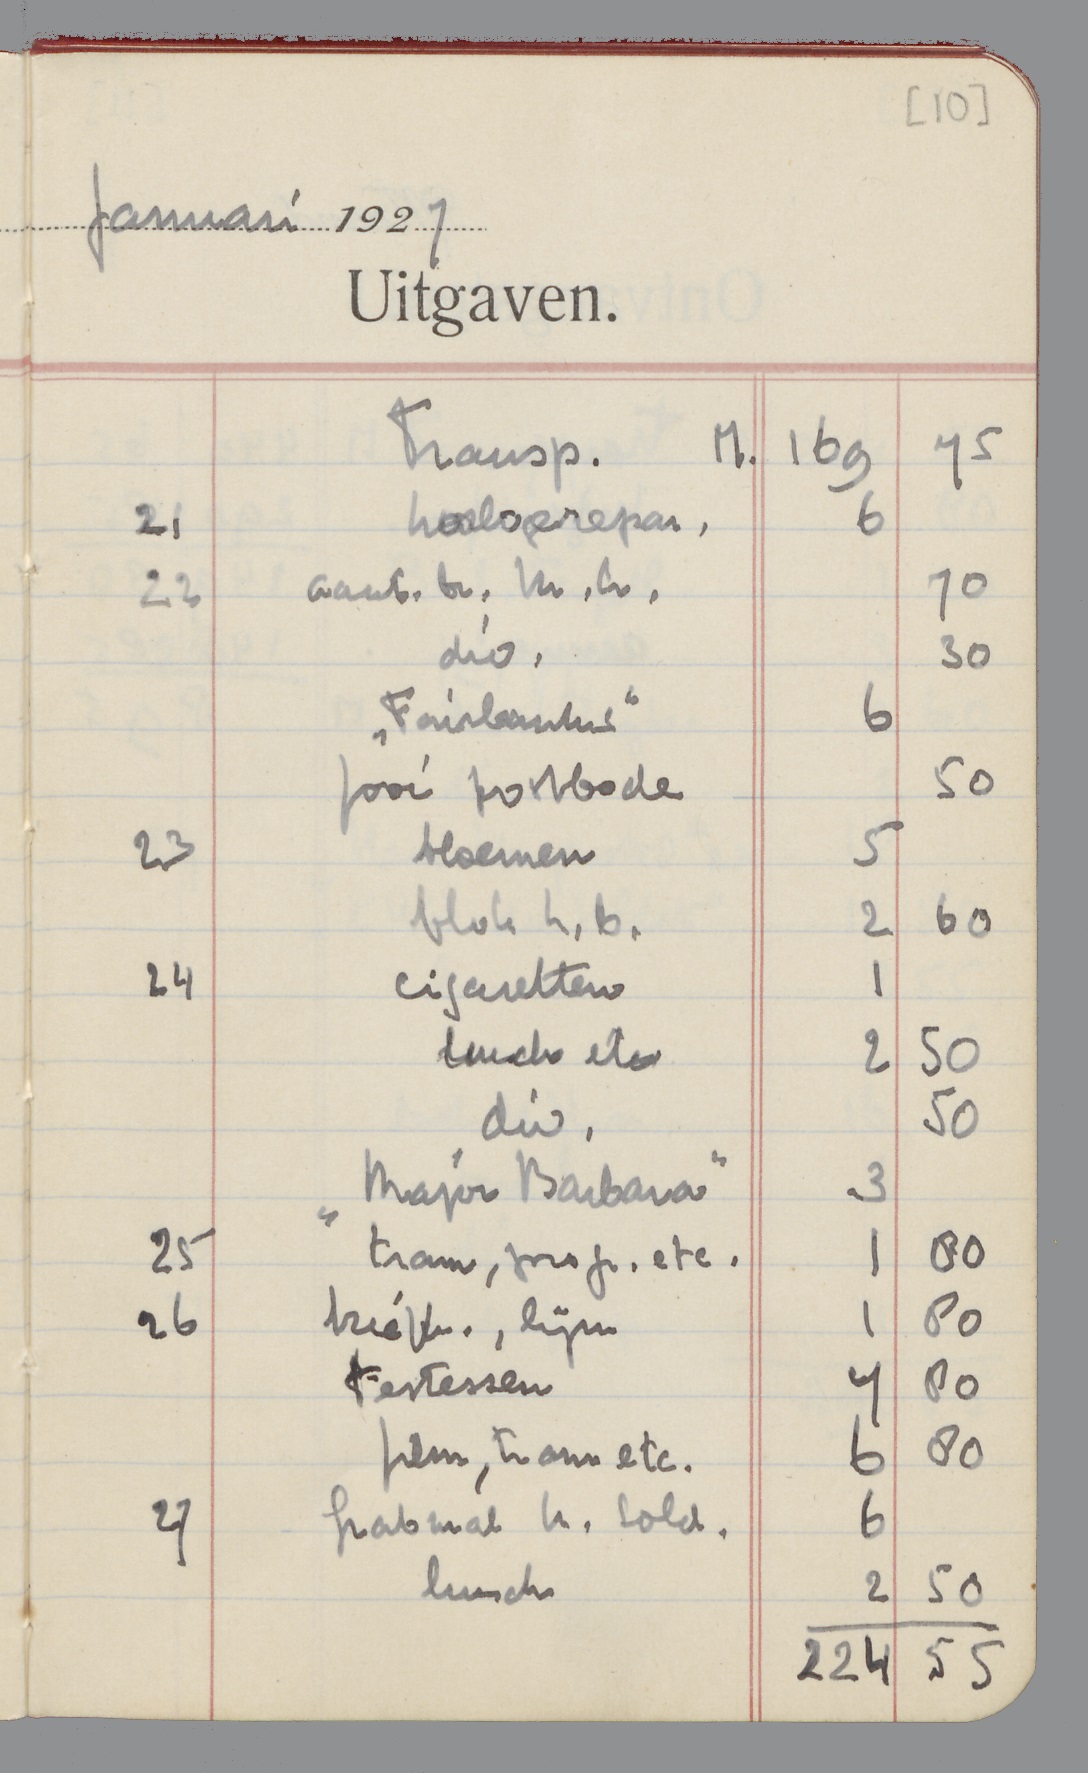 [10]
Januari 1927
Uitgaven.
Transp. M. 169 75
21 horlogerepar, 6
22 aant. br. 70
div. 30
„Fairbanks“ 6
fooi postbode 50
23 bloemen 5
blok h. b. 2 60
24 cigaretten 1
lunch etc 2 50
div. 50
„Major Barbara“ 3
25 tram, progr. etc. 1 80
26 briefk., lijm 1 80
Festessen 7 80
film, tram etc. 6 80
27 Grabmal h. Sold. 6
lunch 2 50
224 55